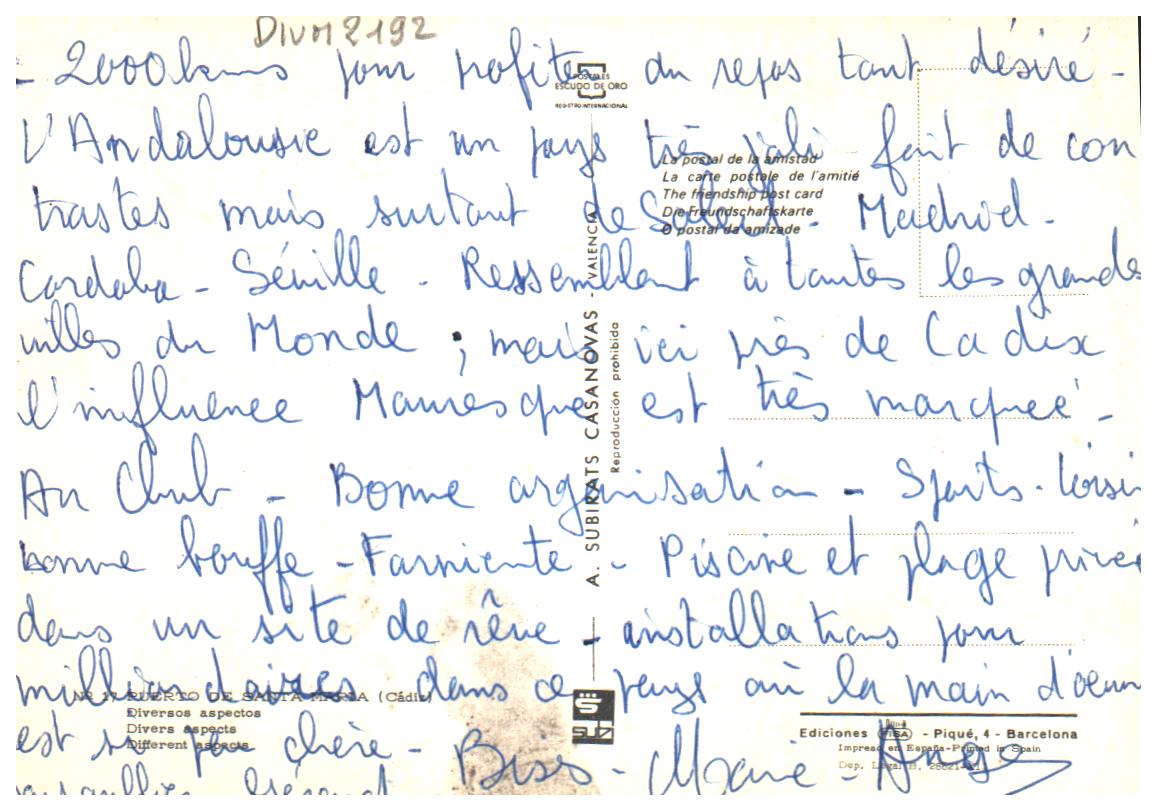 DIVM2192
- 2000 kms pour profiter du repos tant désiré -
L'Andalousie est un pays très joli fait de con
trastes mais surtout de Soleil - Madrid -
Cordoba - Séville - Ressemblent à toutes les grandes
villes du Monde ; mais ici près de Cadix
l'influence Mauresque est très marquée -
Au Club - Bonne organisation - Sports - loisirs
bonne bouffe - Farniente - Piscine et plage privée
dans un site de rêve - installations pour
millionnaires dans ce pays où la main d'oeuv
est si peu chère - Bises - Marie - Ange
POSTALES
ESCUDO DE ORO
REGISTRO INTERNACIONAL
La postal de la amistad
La carte postale de l'amitié
The friendship post card
Die Freundschaftskarte
O postal da amizade
A. SUBIRATS CASANOVAS - VALENCIA
Reproducción prohibida
Nº 17 PUERTO DE SANTA MARIA (Cádiz)
Diversos aspectos
Divers aspects
Different aspects
SUB
Ediciones FISA - Piqué, 4 - Barcelona
Impreso en España-Printed in Spain
Dep. Legal B.